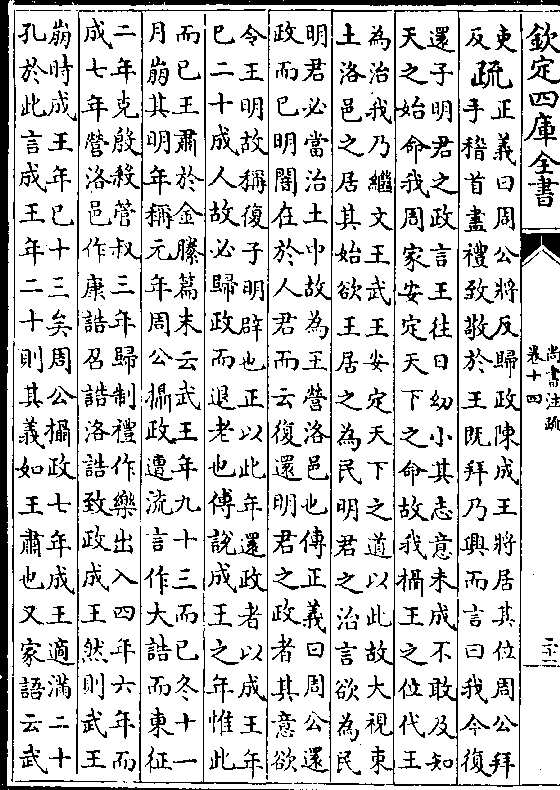 欽定四庫全書
尚書注疏
卷十四
吏
反
疏
正義曰周公將反歸政陳成王將居其位周公拜
手稽首盡禮致敬於王既拜乃興而言曰我今復
還子明君之政言王往日幼小其志意未成不敢及知
天之始命我周家安定天下之命故我攝王之位代王
為治我乃繼文王武王安定天下之道以此故大視東
土洛邑之居其始欲王居之為民明君之治言欲為民
明君必當治土中故為王營洛邑也傳正義曰周公還
政而已明闇在於人君而云復還明君之政者其意欲
令王明故稱復子明辟也正以此年還政者以成王年
已二十成人故必歸政而退老也傳說成王之年惟此
而已王肅於金縢篇末云武王年九十三而已冬十一
月崩其明年稱元年周公攝政遭流言作大誥而東征
二年克殷殺管叔三年歸制禮作樂出入四年六年而
成七年營洛邑作康誥召誥洛誥致政成王然則武王
崩時成王年已十三矣周公攝政七年成王適滿二十
孔於此言成王年二十則其義如王肅也又家語云武